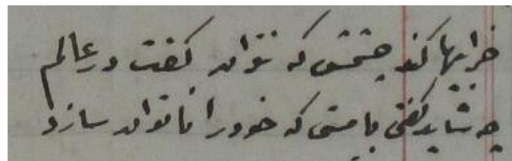 خرابیها کند چشمش که نتوان گفت در عالم
چه شاید گفت با مستی که خود را ناتوان سازد